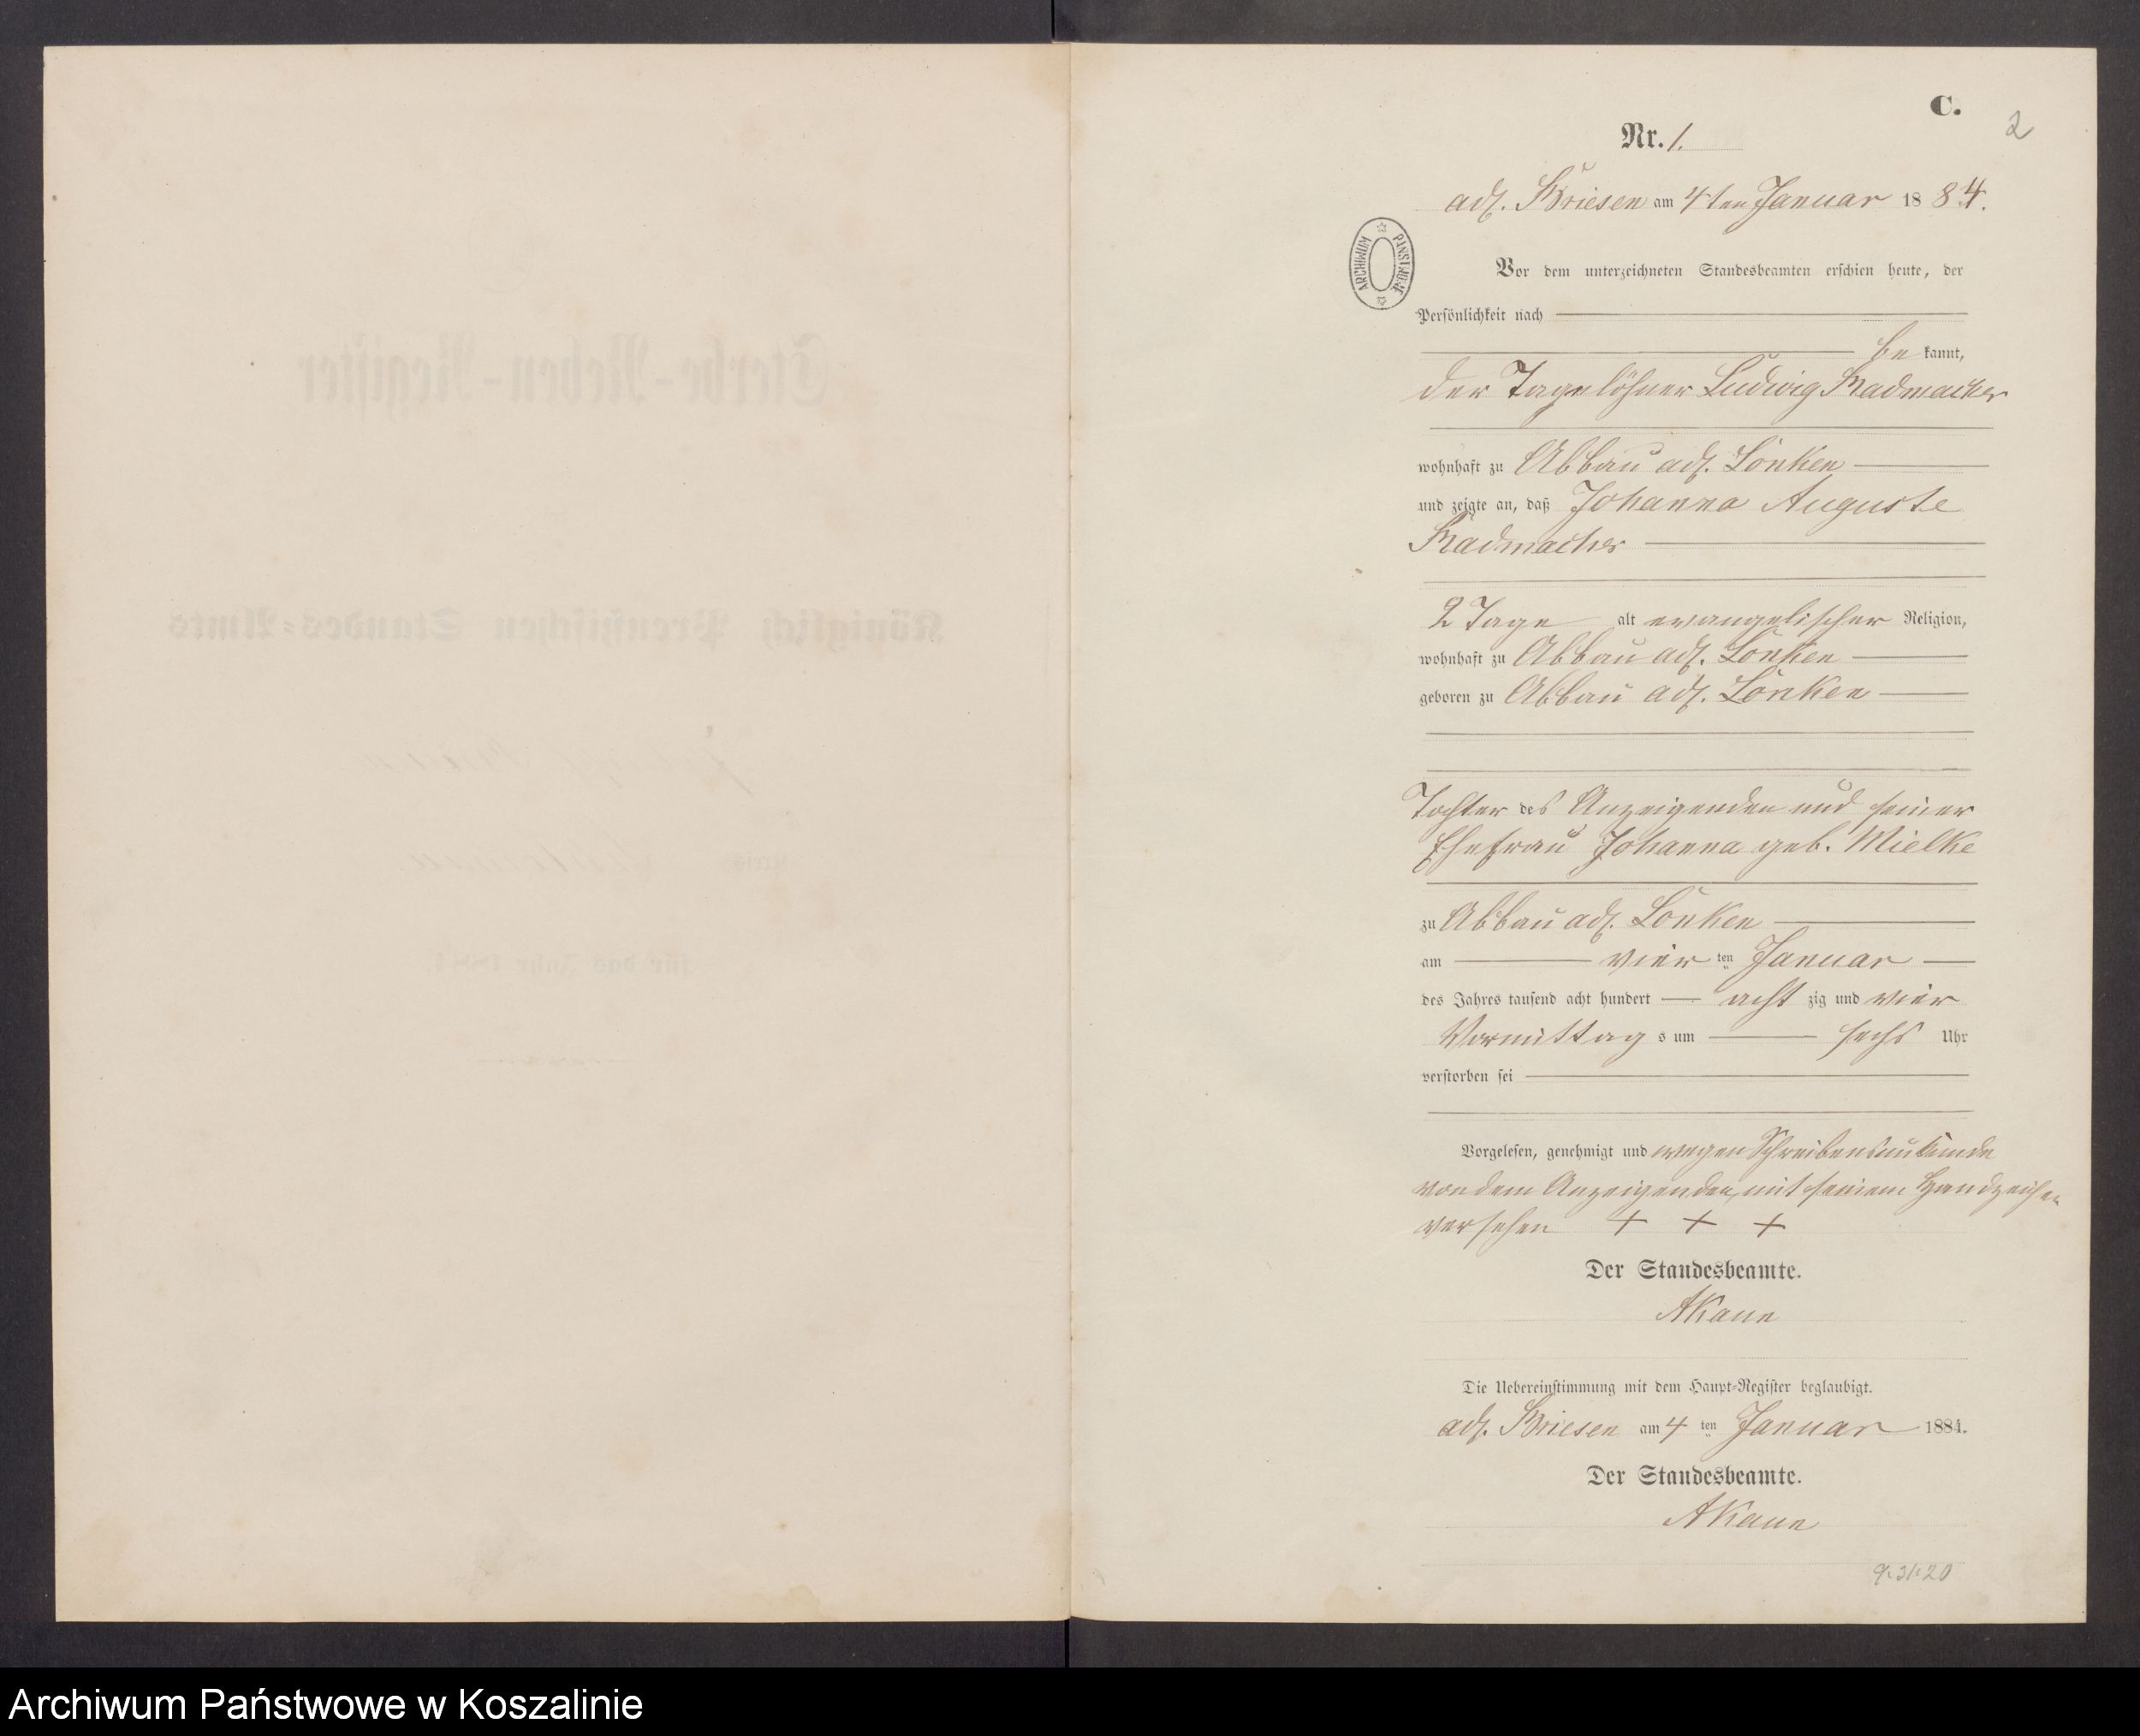 C.
2
Nr. 1.
adl. Briesen am 4ten Januar 1884.
Vor dem unterzeichneten Standesbeamten erschien heute, der
Persönlichkeit nach
bekannt,
der Tagelöhner Ludwig Radmacher
wohnhaft zu Abbau adl. Lonken
und zeigte an, daß Johanna Auguste
Radmacher
2 Tage alt evangelischer Religion,
wohnhaft zu Abbau adl. Lonken
geboren zu Abbau adl. Lonken
Tochter des Anzeigenden und seiner
Ehefrau Johanna geb. Mielke
zu Abbau adl. Lonken
am vierten Januar
des Jahres tausend acht hundert achtzig und vier
Vormittags um sechs Uhr
verstorben sei
Vorgelesen, genehmigt und wegen Schreibensunkunde
von dem Anzeigenden mit seinem Handzeichen
versehen + + +
Der Standesbeamte.
Die Uebereinstimmung mit dem Haupt-Register beglaubigt.
adl. Briesen am 4ten Januar 1884.
Der Standesbeamte.
9.31.20
ARCHIWUM PAŃSTWOWE
Sterbe-Neben-Register
Königlich Preußischen Standes-Amts
Kreis
für das Jahr 1884.
Archiwum Państwowe w Koszalinie